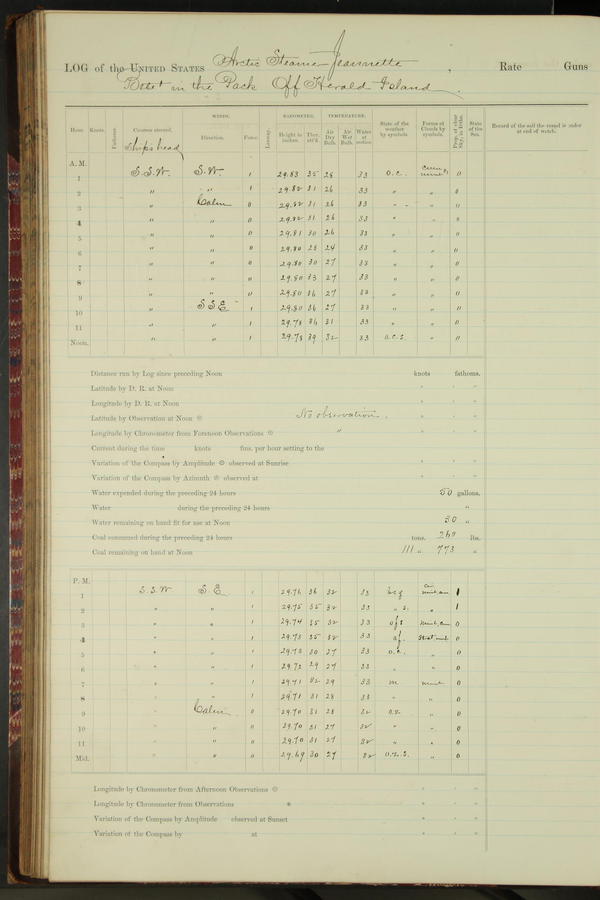 LOG of the UNITED STATES Arctic Steamer Jeannette, Rate Guns
Beset in the Pack Off Herald Island.
WINDS. BAROMETER. TEMPERATURE.
Hour. Knots. Fathoms. Courses steered. Direction. Force. Leeway. Height in inches. Ther. att'd. Air Dry Bulb. Air Wet Bulb. Water at surface. State of the weather by symbols. Forms of Clouds by symbols. Prop. of clear Sky, in 10ths. State of the Sea. Record of the sail the vessel is under at end of watch.
Ship's head
A. M.
1 S.S.W. S.W. 1 29.83 35 28 33 o.c. 0
2 " " 1 29.82 31 26 33 " " 0
3 " Calm 0 29.82 31 26 33 " " 0
4 " " 0 29.82 31 26 33 " " 0
5 " " 0 29.81 30 26 33 " " 0
6 " " 0 29.80 28 24 33 " " 0
7 " " 0 29.80 30 27 33 " " 0
8 " " 0 29.80 33 27 33 " " 0
9 " " 0 29.80 36 27 33 " " 0
10 " S.S.E. 1 29.80 36 27 33 " " 0
11 " " 1 29.78 36 31 33 " " 0
Noon. " " 1 29.78 39 32 33 o.c.s. " 0
Distance run by Log since preceding Noon knots fathoms.
Latitude by D. R. at Noon ° ' "
Longitude by D. R. at Noon ° ' "
Latitude by Observation at Noon No observation. ° ' "
Longitude by Chronometer from Forenoon Observations " ° ' "
Current during the time knots fms. per hour setting to the
Variation of the Compass by Amplitude observed at Sunrise ° ' "
Variation of the Compass by Azimuth observed at ° ' "
Water expended during the preceding 24 hours 50 gallons.
Water during the preceding 24 hours "
Water remaining on hand fit for use at Noon 30 "
Coal consumed during the preceding 24 hours tons. 260 lbs.
Coal remaining on hand at Noon 111 " 773 "
P. M.
1 S.S.W S.E. 1 29.76 36 32 33 1
2 " " 1 29.75 35 32 33 " s. " 1
3 " " 1 29.74 35 32 33 o f s 0
4 " " 1 29.73 35 32 33 o f. 0
5 " " 1 29.73 30 27 33 o.c. " 0
6 " " 1 29.72 29 27 33 " " 0
7 " " 1 29.71 32 29 33 m 0
8 " " 1 29.71 31 28 33 " " 0
9 " Calm 0 29.70 31 28 32 " 0
10 " " 0 29.70 31 27 32 " " 0
11 " " 0 29.70 31 27 32 " " 0
Mid. " " 0 29.69 30 27 32 " 0
Longitude by Chronometer from Afternoon Observations ° ' "
Longitude by Chronometer from Observations ° ' "
Variation of the Compass by Amplitude observed at Sunset ° ' "
Variation of the Compass by at ° ' "